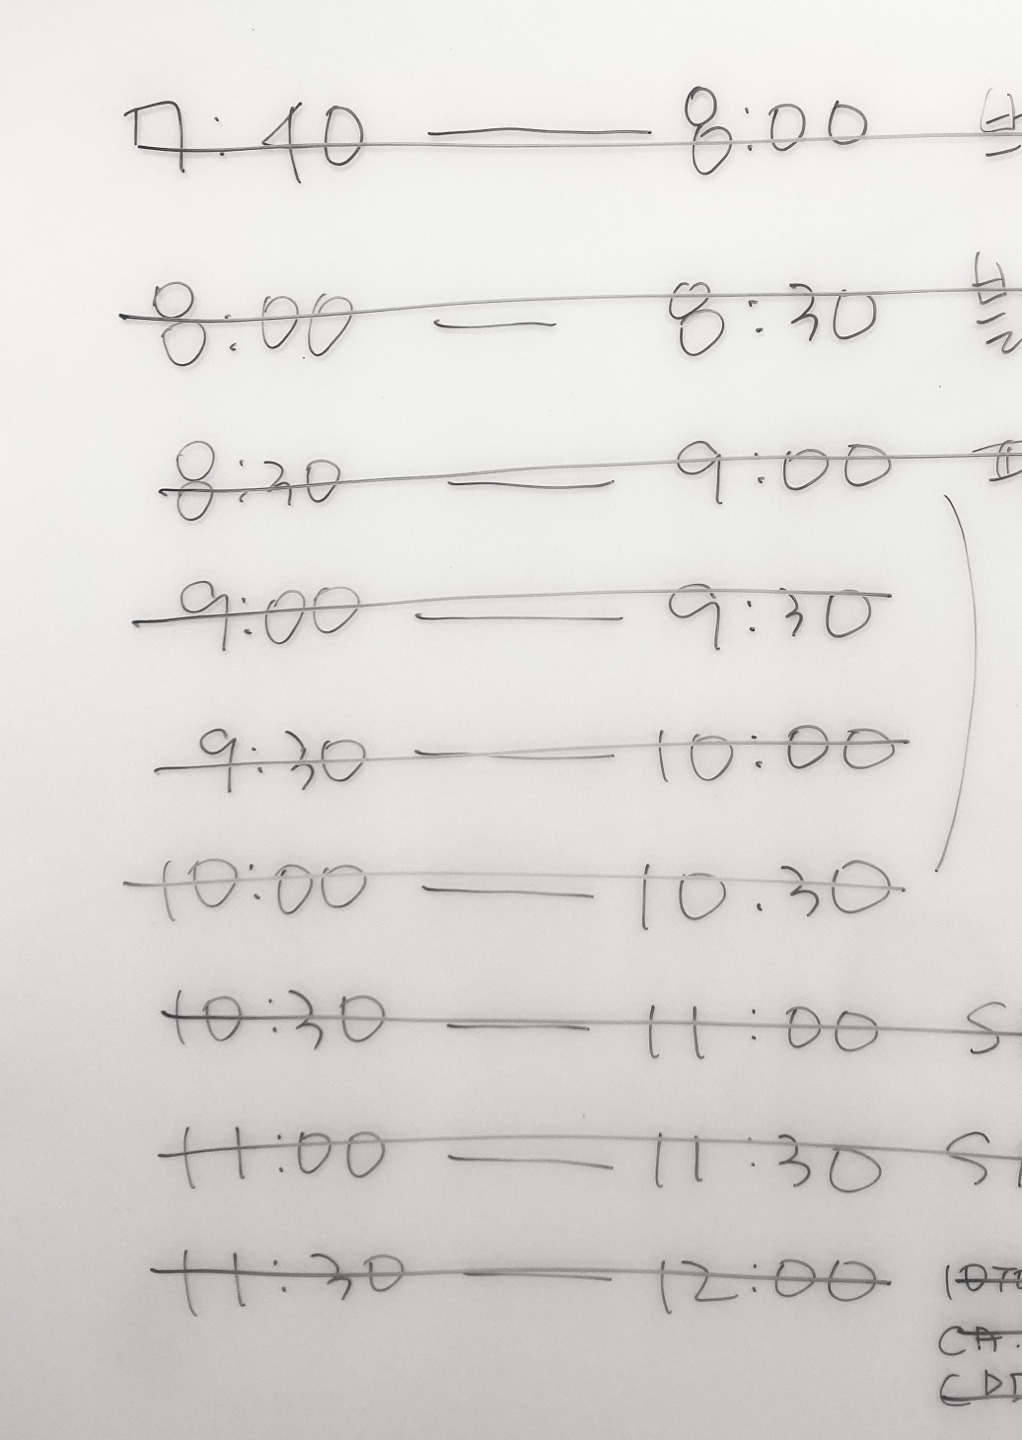 7:40 — 8:00
8:00 — 8:30
8:30 — 9:00
9:00 — 9:30
9:30 — 10:00
10:00 — 10.30
10:30 — 11:00
11:00 — 11:30
11:30 — 12:00